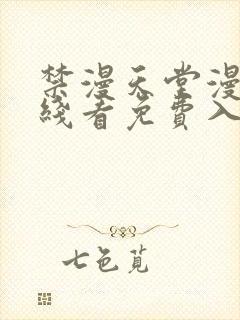 禁漫天堂漫
线看免費入
七色覓